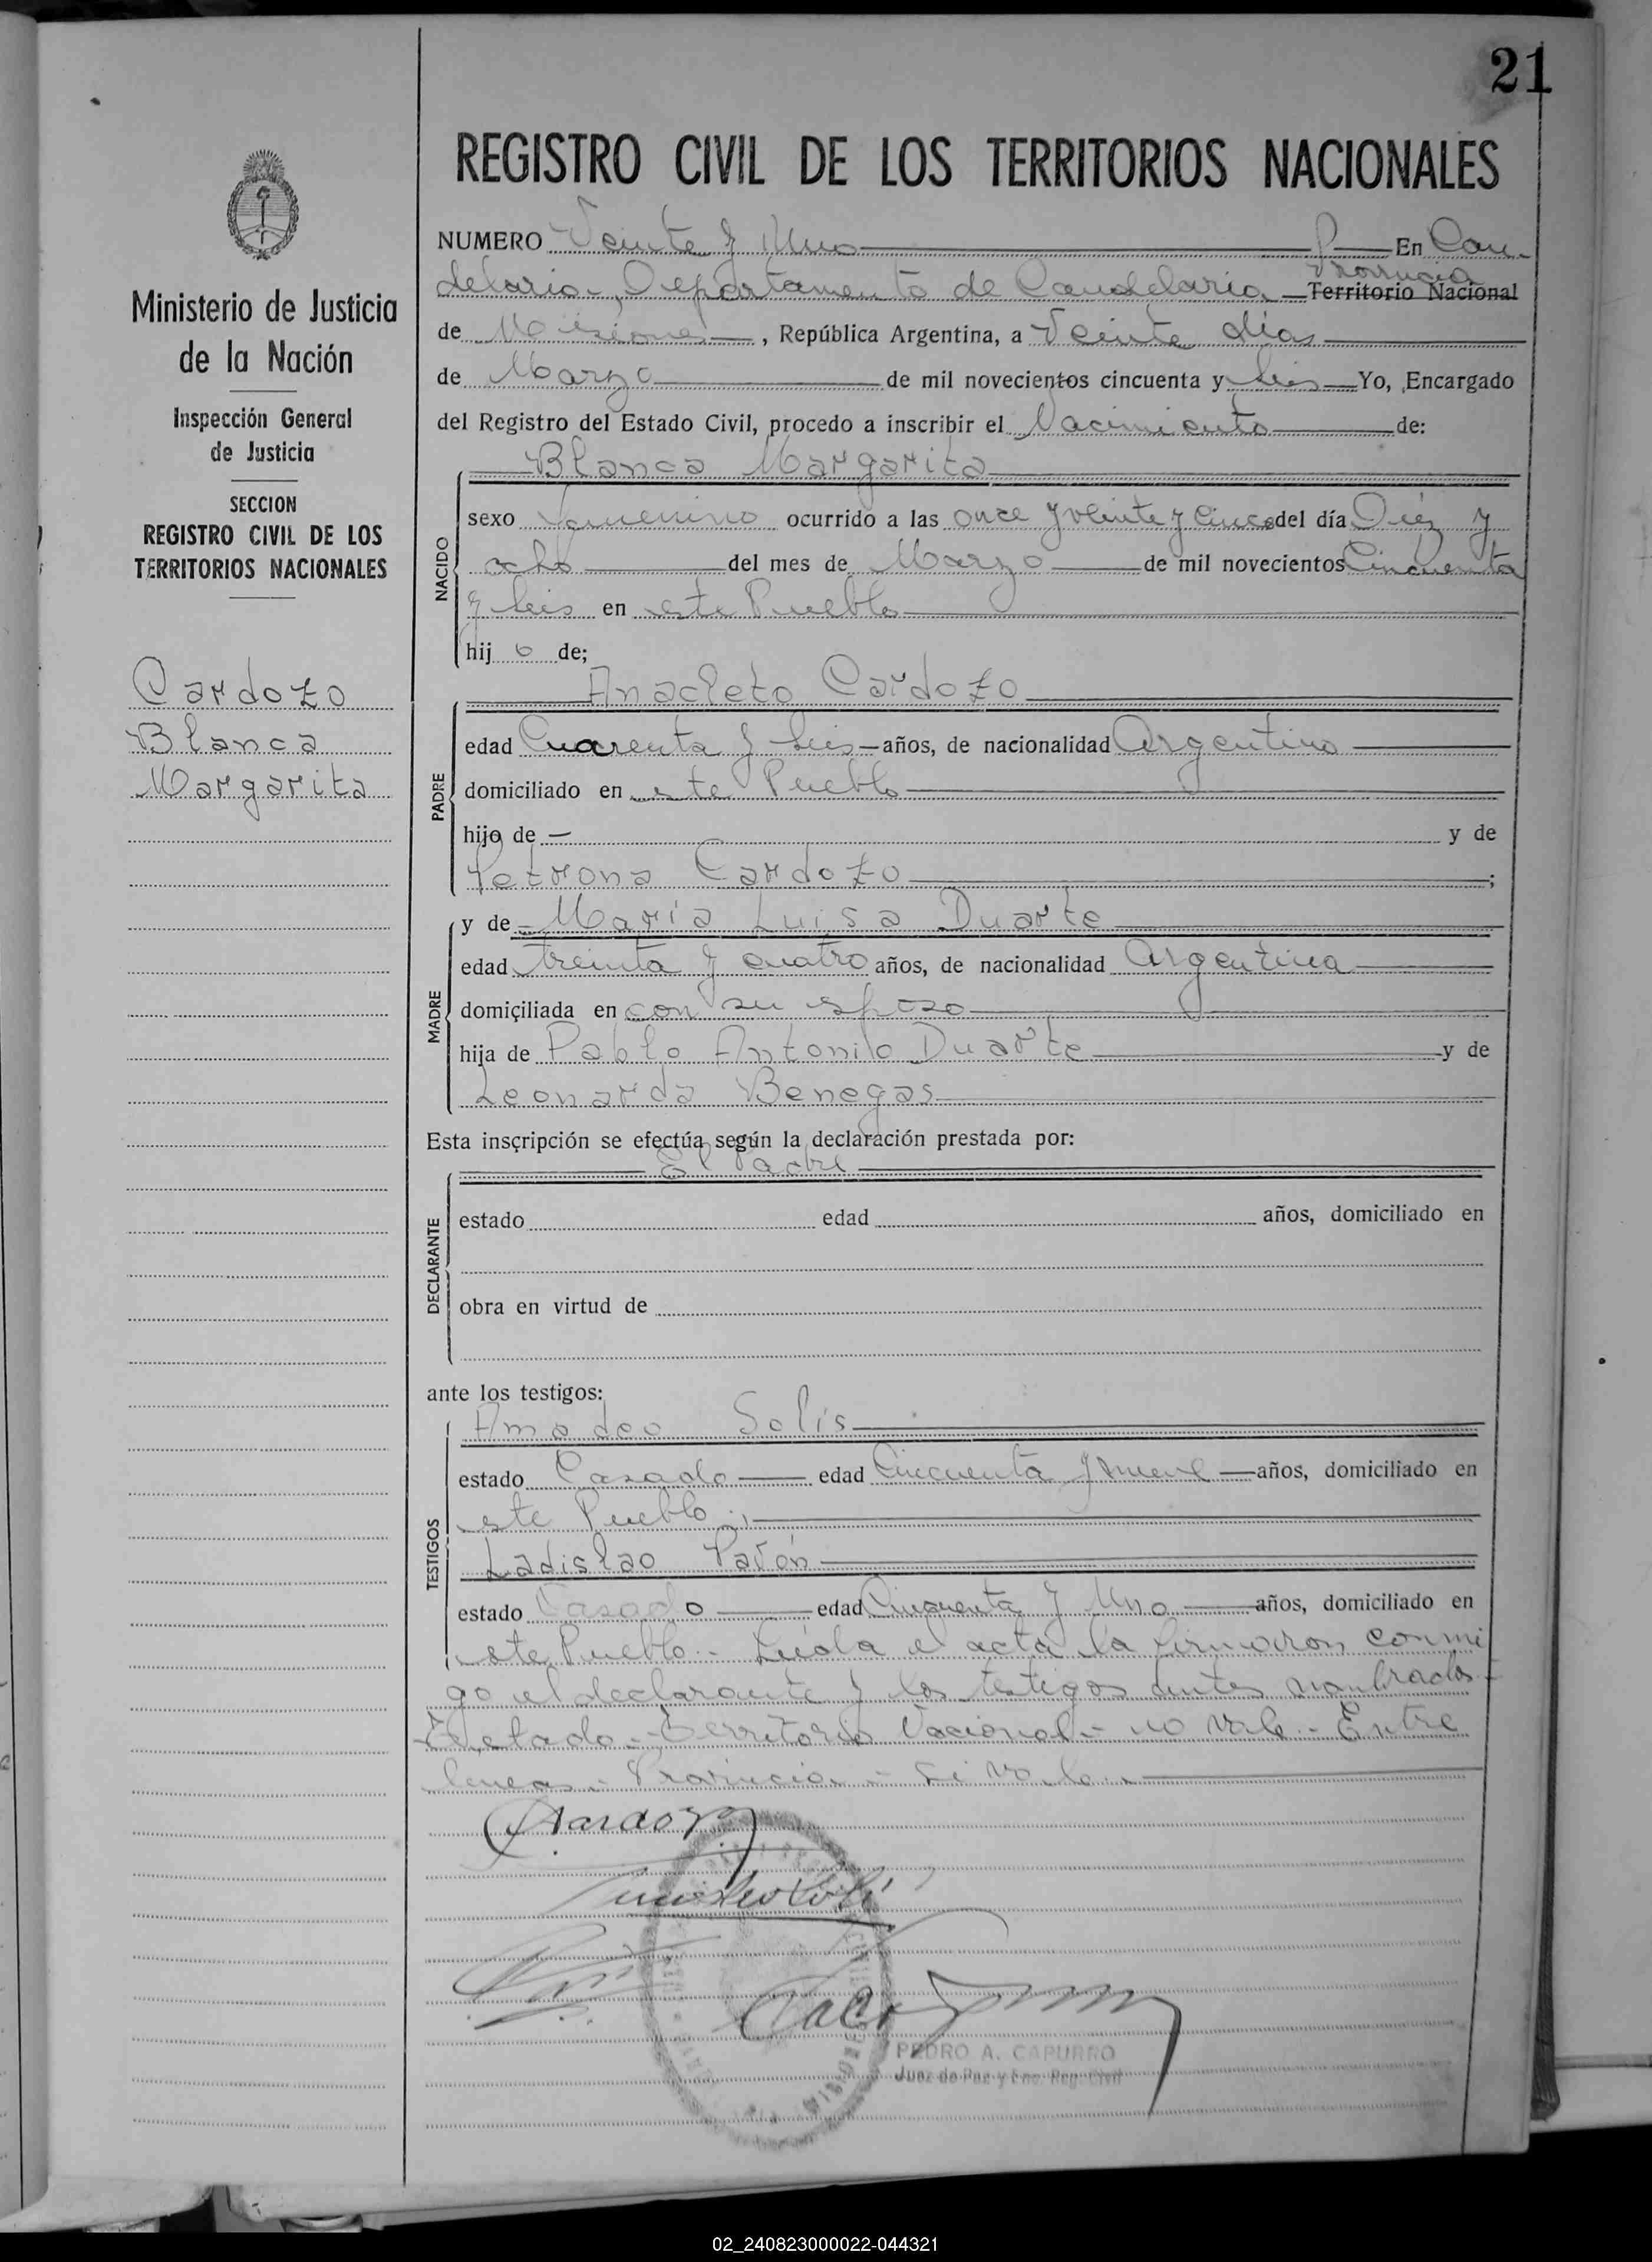 21
REGISTRO CIVIL DE LOS TERRITORIOS NACIONALES
Ministerio de Justicia
de la Nación
Inspección General
de Justicia
SECCION
REGISTRO CIVIL DE LOS
TERRITORIOS NACIONALES
Cardozo
Blanca
Margarita
NUMERO Veinte y Uno En Can-
delaria-, Departamento de Candelaria Provincia Territorio Nacional
de Misiones, República Argentina, a Veinte días
de Marzo de mil novecientos cincuenta y seis Yo, Encargado
del Registro del Estado Civil, procedo a inscribir el Nacimiento de:
NACIDO
Blanca Margarita
sexo Femenino ocurrido a las once y veinte y cinco del día Diéz y
ocho del mes de Marzo de mil novecientos Cincuenta
y seis en este Pueblo
hij o de;
PADRE
Anacleto Cardozo
edad Cuarenta y seis años, de nacionalidad Argentino
domiciliado en este Pueblo
hijo de — y de
Petrona Cardozo;
MADRE
y de María Luisa Duarte
edad treinta y cuatro años, de nacionalidad Argentina
domiciliada en con su esposo
hija de Pablo Antonio Duarte y de
Leonarda Benegas
Esta inscripción se efectúa según la declaración prestada por:
DECLARANTE
El Padre
estado edad años, domiciliado en
obra en virtud de
ante los testigos:
TESTIGOS
Amadeo Solís
estado Casado edad Cincuenta y nueve años, domiciliado en
este Pueblo.;
Ladislao Pavón
estado Casado edad Cincuenta y Uno años, domiciliado en
este Pueblo.- Leída el acta la firmaron conmi
go el declarante y los testigos antes nombrados.-
Testado.- Territorio Nacional - no vale.- Entre
lineas.- Provincia - si vale.-
Cardozo
PEDRO A. CAPURRO
Juez de Paz y Enc. Reg. Civil
MISIONES
02_240823000022-044321